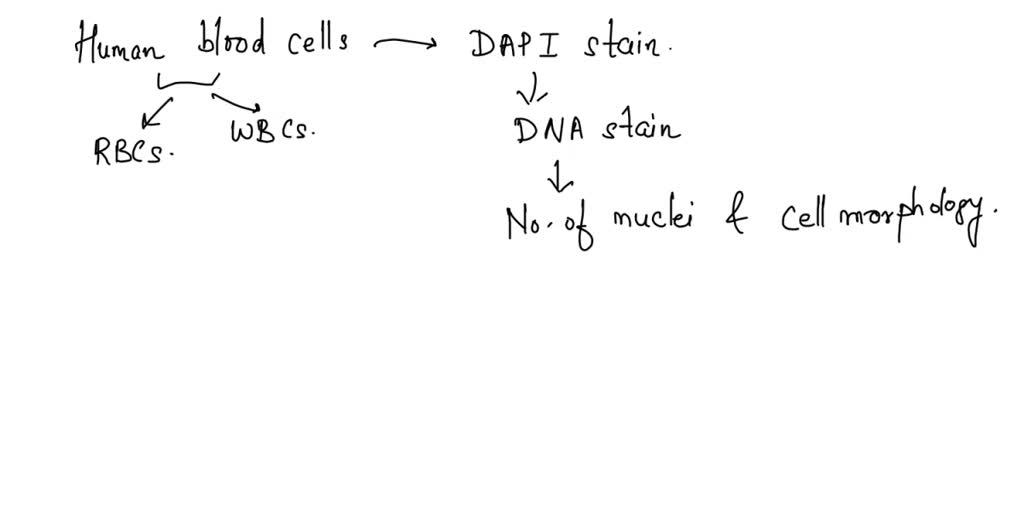 Human blood cells → DAPI stain.
↓
RBCs. WBCs. DNA stain
↓
No. of nuclei & cell morphology.